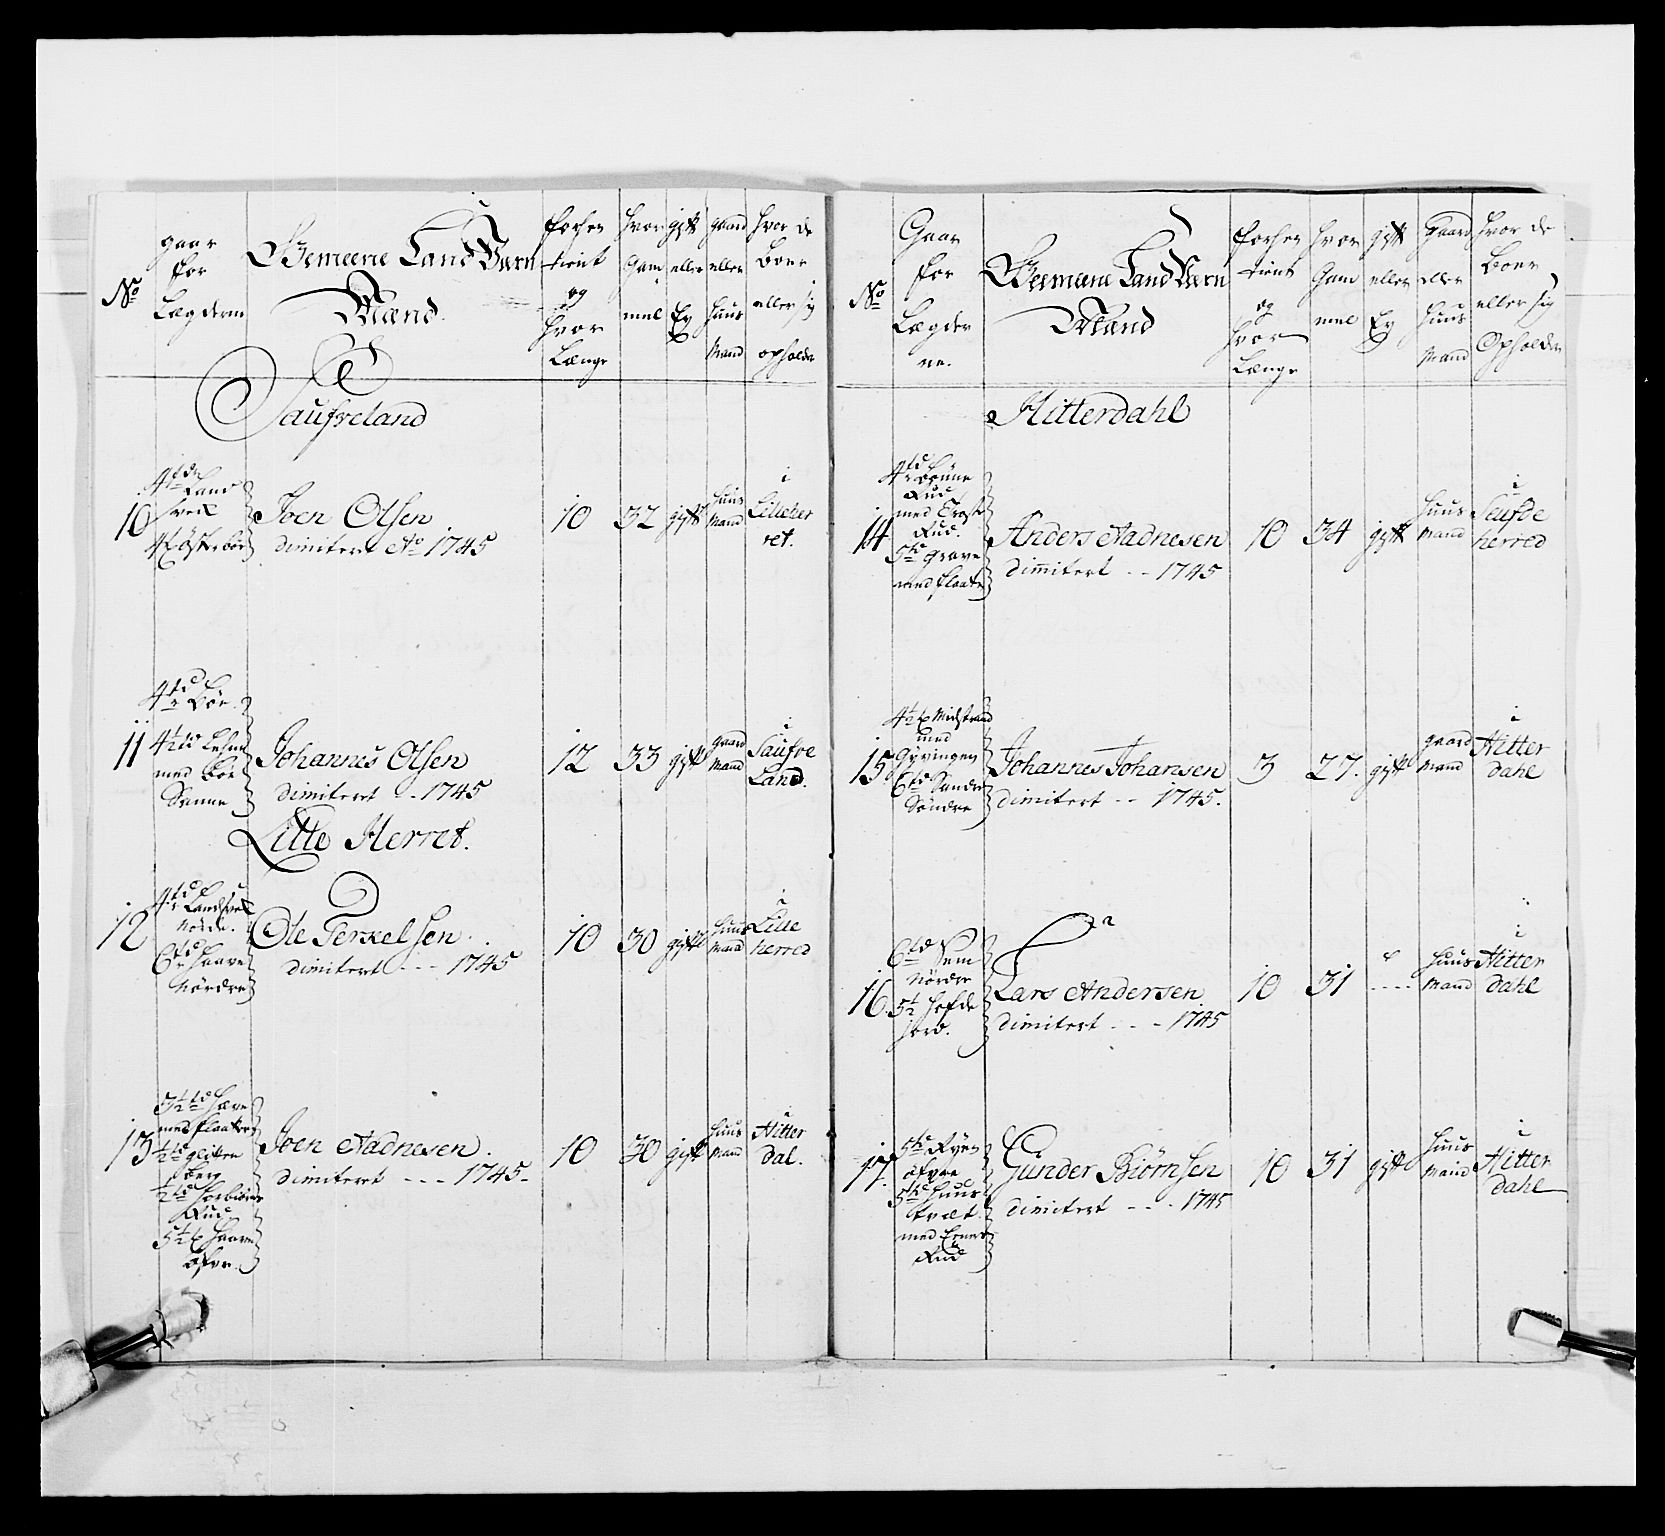 No
Gaar
for
Lægderne
Gemeene Land Værn
Mænd.
forhen
tient
og
hvor
Længe
hvor
Gam
mel
gift
eller
Ey
gaard
eller
huus
Mand
hvor de
boer
eller sig
opholder
Saufveland
10
Joen Olsen
dimitert Ao 1745
10
32
gift
huus
Mand
i
Lilleher
ret.
4td Bøe.
11
med Bøe
Johannes Olsen
dimitert - - 1745
12
33
gift
gaard
Mand
i
Saufve
Land.
Litle Herret.
12
Nørdre
Ole Terkelsen
dimitert - - - 1745
10
30
gift
huus
Mand
i
Lille
herred
13
berg
Rud
Joen Aadnesen.
dimitert - - - 1745-
10
30
gift
huus
Mand
i
Hitter
dal.
No
Gaar
for
Lægder
ne.
Gemeene Land Værn
Mænd
forhen
tient
og
hvor
Længe
hvor
Gam
mel
gift
eller
Ey
Gaard
eller
huus
Mand
hvor de
boer
eller sig
Opholder
Hitterdahl
14
Rud
Rud.
Anders Aadnesen
dimitert - - 1745
10
34
gift
huus
Mand
i
Seufde
herred
15
med
Søndre
Johannes Johansen
dimitert - - 1745.
3
27.
gift
gaard
Mand
i
Hitter
dahl
16.
6td Sem
Nørdre
Lars Andersen
dimitert - - - 1745
10
31
- - - -
huus
Mand
i
Hitter
dahl
17.
Rud
Gunder Biørnsen
dimitert - - - 1745
10
31
gift
huus
Mand
i
Hitter
dahl